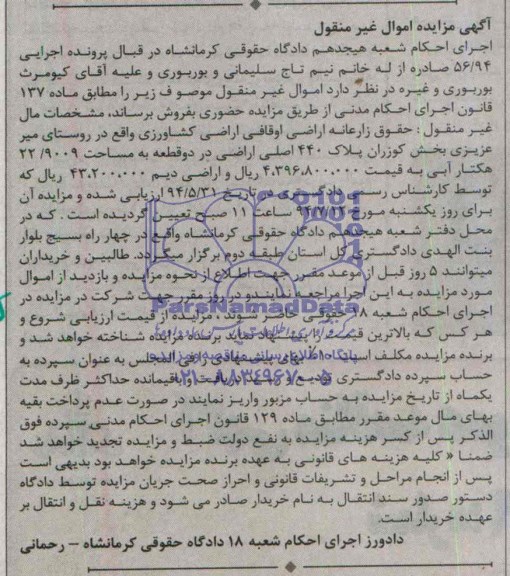 آگهی مزایده اموال غیر منقول
اجرای احکام شعبه هیجدهم دادگاه حقوقی کرمانشاه در قبال پرونده اجرایی
۵۶/۹۴ صادره از له خانم نیم تاج سلیمانی و بوربوری و علیه آقای کیومرث
بوربوری و غیره در نظر دارد اموال غیر منقول موصوف زیر را مطابق ماده ۱۳۷
قانون اجرای احکام مدنی از طریق مزایده حضوری بفروش برساند، مشخصات مال
غیر منقول : حقوق زارعانه اراضی اوقافی اراضی کشاورزی واقع در روستای میر
عزیزی بخش کوزران پلاک ۴۴۰ اصلی اراضی در دوقطعه به مساحت ۲۲/۹۰۰۹
هکتار آبی به قیمت ۴،۳۹۶،۸۰۰،۰۰۰ ریال و اراضی دیم ۴۳،۲۰۰،۰۰۰ ریال که
توسط کارشناس رسمی دادگستری در تاریخ ۹۴/۵/۳۱ ارزیابی شده و مزایده آن
برای روز یکشنبه مورخ ساعت ۱۱ صبح تعیین گردیده است . که در
محل دفتر شعبه هیجدهم دادگاه حقوقی کرمانشاه واقع در چهار راه بسیج بلوار
بنت الهدی دادگستری کل استان طبقه دوم برگزار میگردد. طالبین و خریداران
میتوانند ۵ روز قبل از موعد مقرر جهت اطلاع از نحوه مزایده و بازدید از اموال
مورد مزایده به این اجرا مراجعه نمایندو در روز مقرر جهت شرکت در مزایده در
اجرای احکام شعبه ۱۸ حقوقی حاضر شوند ، مزایده از قیمت ارزیابی شروع و
هر کس که بالاترین قیمت را پیشنهاد نماید برنده مزایده شناخته خواهد شد و
برنده مزایده مکلف است ۱۰٪ بهای پیشنهادی را فی المجلس به عنوان سپرده به
حساب سپرده دادگستری تودیع و رسید دریافت و باقیمانده حداکثر ظرف مدت
یکماه از تاریخ مزایده به حساب مزبور واریز نمایند در صورت عدم پرداخت بقیه
بهای مال موعد مقرر مطابق ماده ۱۲۹ قانون اجرای احکام مدنی سپرده فوق
الذکر پس از کسر هزینه مزایده به نفع دولت ضبط و مزایده تجدید خواهد شد
ضمنا « کلیه هزینه های قانونی به عهده برنده مزایده خواهد بود بدیهی است
پس از انجام مراحل و تشریفات قانونی و احراز صحت جریان مزایده توسط دادگاه
دستور صدور سند انتقال به نام خریدار صادر می شود و هزینه نقل و انتقال بر
عهده خریدار است.
دادورز اجرای احکام شعبه ۱۸ دادگاه حقوقی کرمانشاه – رحمانی
ParsNamadData
پایگاه اطلاع رسانی مناقصه و مزایده
۰۲۱-۸۸۳۴۹۶۷۰-۵